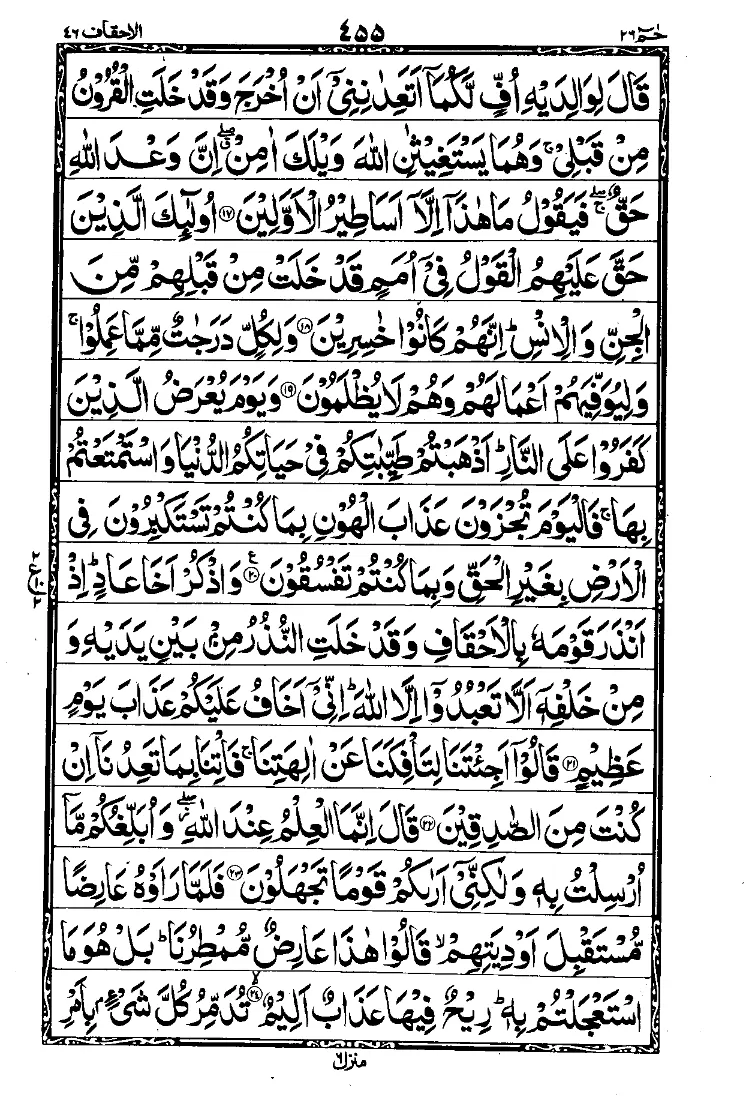 حٰمٓ ٢٦ ٤٥٥ الاحقاف ٤٦
قَالَ لِوَالِدَيْهِ اُفٍّ لَّكُمَاۤ اَتَعِدٰنِنِیْۤ اَنْ اُخْرَجَ وَقَدْ خَلَتِ الْقُرُوْنُ
مِنْ قَبْلِیْ ۚ وَهُمَا یَسْتَغِیْثٰنِ اللّٰهَ وَیْلَكَ اٰمِنْ ۖۗ اِنَّ وَعْدَ اللّٰهِ
حَقٌّ ۖۚ فَیَقُوْلُ مَا هٰذَاۤ اِلَّاۤ اَسَاطِیْرُ الْاَوَّلِیْنَ ﴿١٧﴾ اُولٰٓئِكَ الَّذِیْنَ
حَقَّ عَلَیْهِمُ الْقَوْلُ فِیْۤ اُمَمٍ قَدْ خَلَتْ مِنْ قَبْلِهِمْ مِّنَ
الْجِنِّ وَالْاِنْسِ ؕ اِنَّهُمْ كَانُوْا خٰسِرِیْنَ ﴿١٨﴾ وَلِكُلٍّ دَرَجٰتٌ مِّمَّا عَمِلُوْا ۚ
وَلِیُوَفِّیَهُمْ اَعْمَالَهُمْ وَهُمْ لَا یُظْلَمُوْنَ ﴿١٩﴾ وَیَوْمَ یُعْرَضُ الَّذِیْنَ
كَفَرُوْا عَلَی النَّارِ ؕ اَذْهَبْتُمْ طَیِّبٰتِكُمْ فِیْ حَیَاتِكُمُ الدُّنْیَا وَاسْتَمْتَعْتُمْ
بِهَا ۚ فَالْیَوْمَ تُجْزَوْنَ عَذَابَ الْهُوْنِ بِمَا كُنْتُمْ تَسْتَكْبِرُوْنَ فِی
الْاَرْضِ بِغَیْرِ الْحَقِّ وَبِمَا كُنْتُمْ تَفْسُقُوْنَ ﴿٢٠﴾ ع وَاذْكُرْ اَخَا عَادٍ ؕ اِذْ
اَنْذَرَ قَوْمَهٗ بِالْاَحْقَافِ وَقَدْ خَلَتِ النُّذُرُ مِنْۢ بَیْنِ یَدَیْهِ وَ
مِنْ خَلْفِهٖۤ اَلَّا تَعْبُدُوْۤا اِلَّا اللّٰهَ ؕ اِنِّیْۤ اَخَافُ عَلَیْكُمْ عَذَابَ یَوْمٍ
عَظِیْمٍ ﴿٢١﴾ قَالُوْۤا اَجِئْتَنَا لِتَاْفِكَنَا عَنْ اٰلِهَتِنَا ۚ فَاْتِنَا بِمَا تَعِدُنَاۤ اِنْ
كُنْتَ مِنَ الصّٰدِقِیْنَ ﴿٢٢﴾ قَالَ اِنَّمَا الْعِلْمُ عِنْدَ اللّٰهِ ۖؗ وَاُبَلِّغُكُمْ مَّاۤ
اُرْسِلْتُ بِهٖ وَلٰكِنِّیْۤ اَرٰىكُمْ قَوْمًا تَجْهَلُوْنَ ﴿٢٣﴾ فَلَمَّا رَاَوْهُ عَارِضًا
مُّسْتَقْبِلَ اَوْدِیَتِهِمْ ۙ قَالُوْا هٰذَا عَارِضٌ مُّمْطِرُنَا ؕ بَلْ هُوَ مَا
اسْتَعْجَلْتُمْ بِهٖ ؕ رِیْحٌ فِیْهَا عَذَابٌ اَلِیْمٌ ﴿٢٤﴾ ۙ تُدَمِّرُ كُلَّ شَیْءٍۭ بِاَمْرِ
منزل ٦